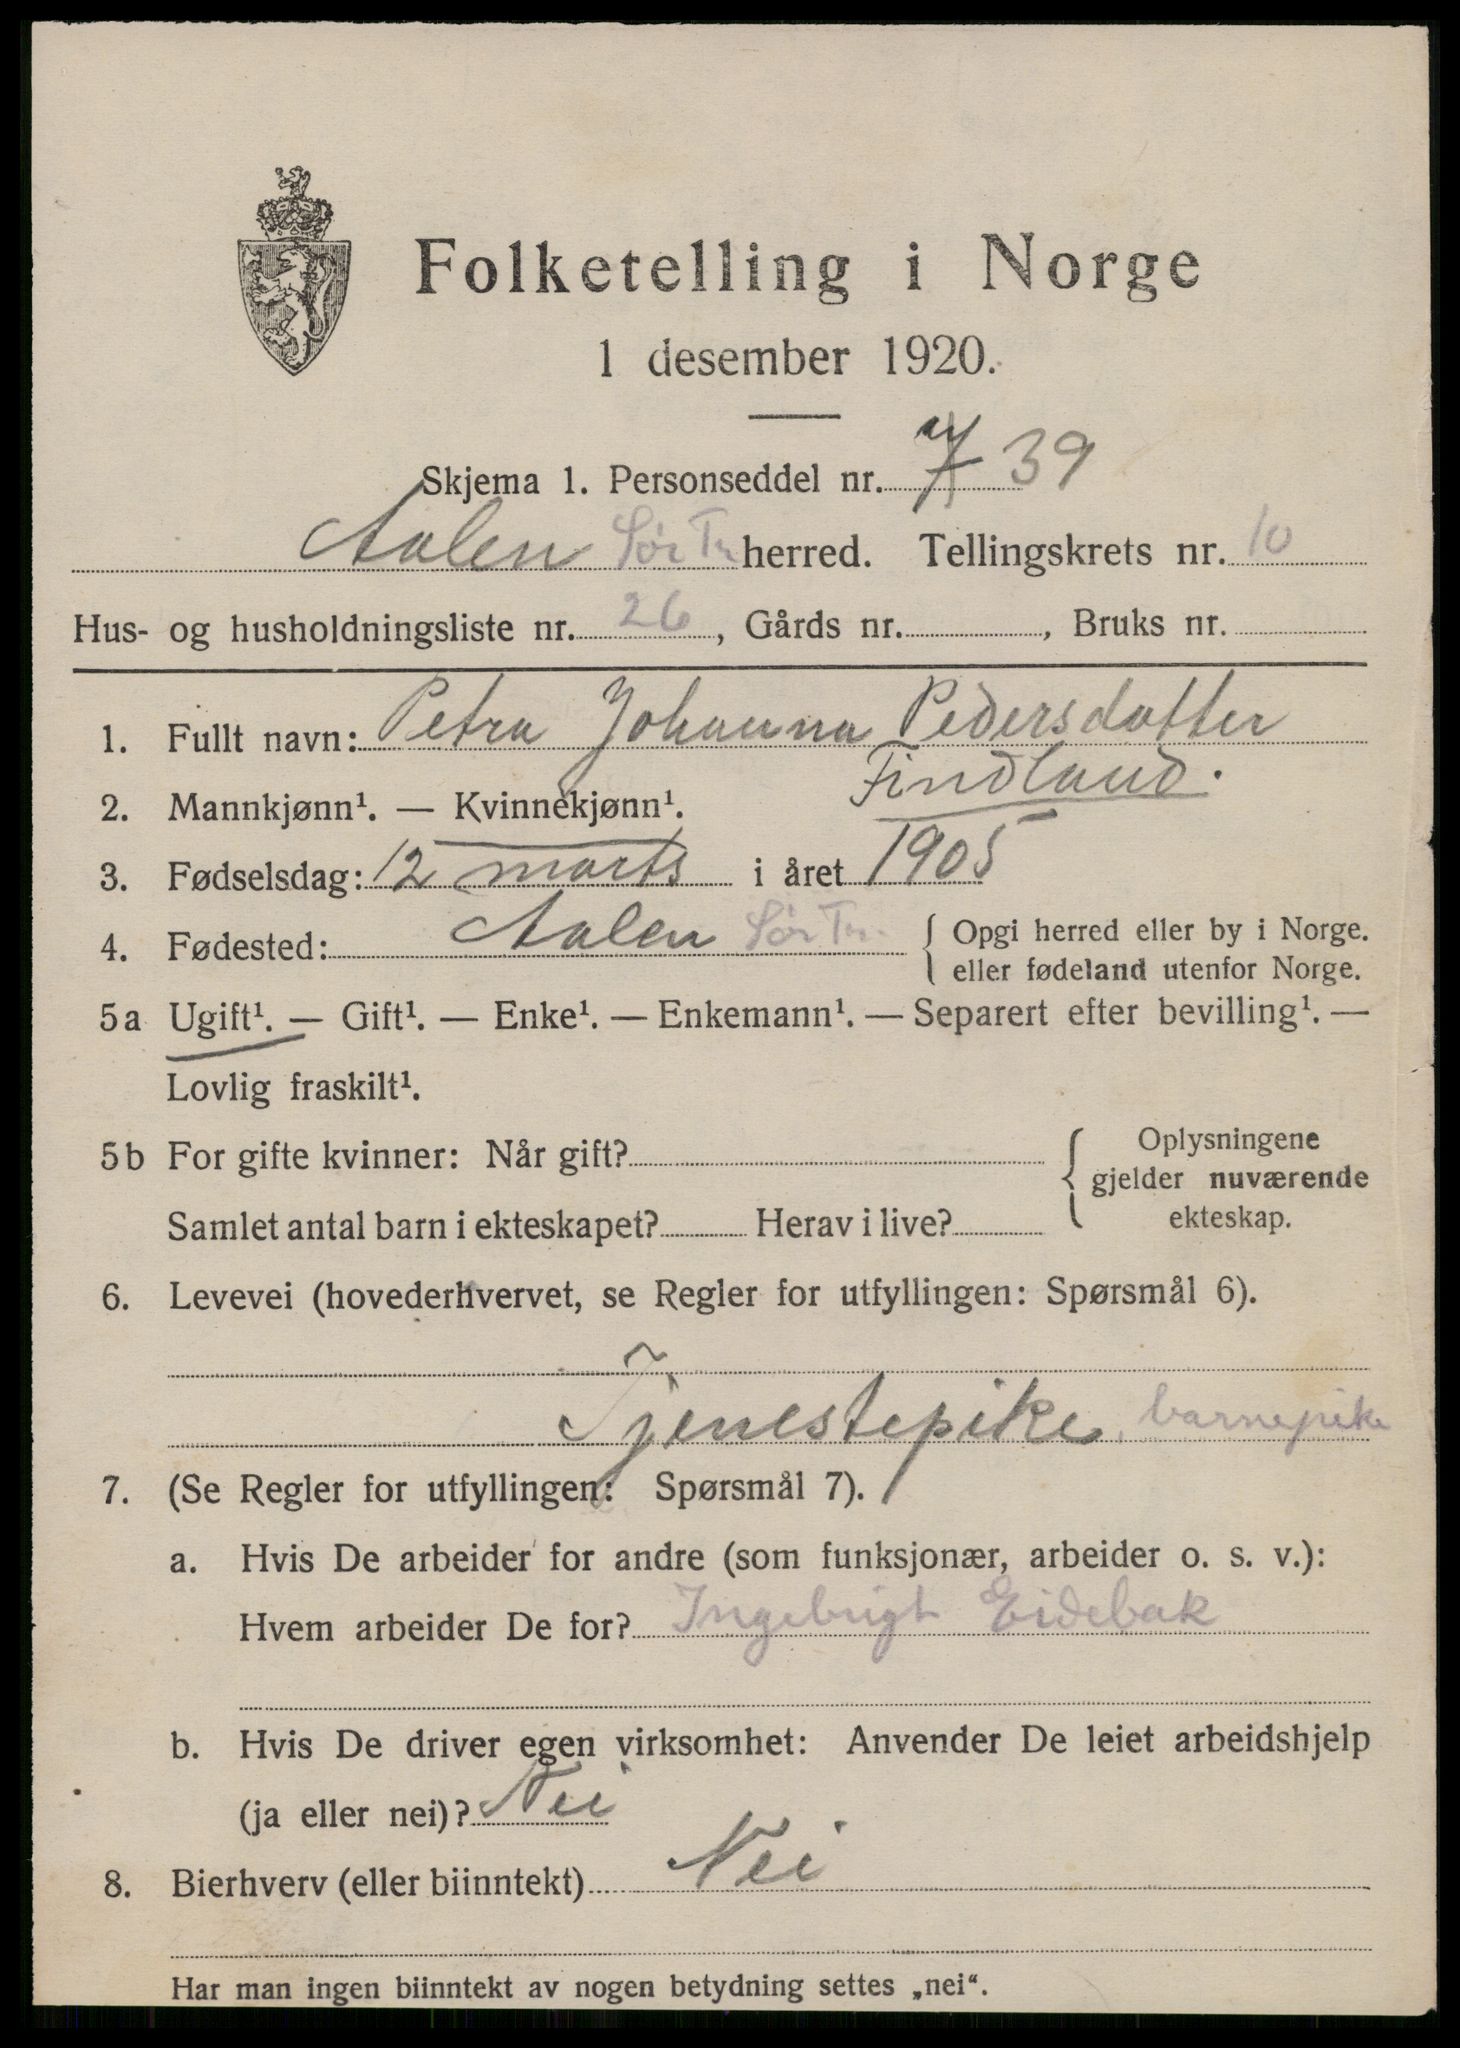 Folketelling i Norge
1 desember 1920.
Skjema 1. Personseddel nr. 7 39
Aalen Sør Tr. herred. Tellingskrets nr. 10
Hus- og husholdningsliste nr. 26, Gårds nr. , Bruks nr.
1. Fullt navn: Petra Johanna Pedersdatter
Findland.
2. Mannkjønn¹. — Kvinnekjønn¹.
3. Fødselsdag: 12 marts i året 1905
4. Fødested: Aalen Sør Tr. { Opgi herred eller by i Norge.
eller fødeland utenfor Norge.
5a Ugift¹. — Gift¹. — Enke¹. — Enkemann¹. — Separert efter bevilling¹. —
Lovlig fraskilt¹.
5b For gifte kvinner: Når gift? { Oplysningene
gjelder nuværende
Samlet antal barn i ekteskapet? Herav i live? ekteskap.
6. Levevei (hovederhvervet, se Regler for utfyllingen: Spørsmål 6).
Tjenestepike, barnepike
7. (Se Regler for utfyllingen: Spørsmål 7).
a. Hvis De arbeider for andre (som funksjonær, arbeider o. s. v.):
Hvem arbeider De for? Ingebrigt Eidebak
b. Hvis De driver egen virksomhet: Anvender De leiet arbeidshjelp
(ja eller nei)? Nei
8. Bierhverv (eller biinntekt) Nei
Har man ingen biinntekt av nogen betydning settes „nei“.